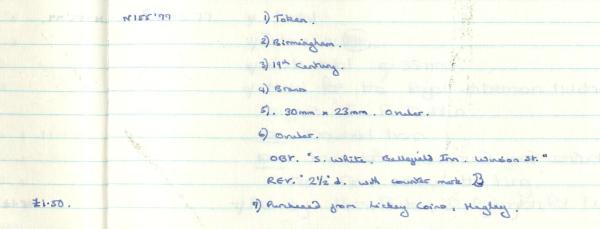 N155'77 1) Token.
2) Birmingham.
3) 19th Century.
4) Brass
5). 30mm x 23mm. Ovular.
6) Ovular.
OBV. "S. White, Bellefield Inn. Winson St."
REV. "2½"d. with counter mark B
£1.50. 7) Purchased from Lickey Coins, Hagley.